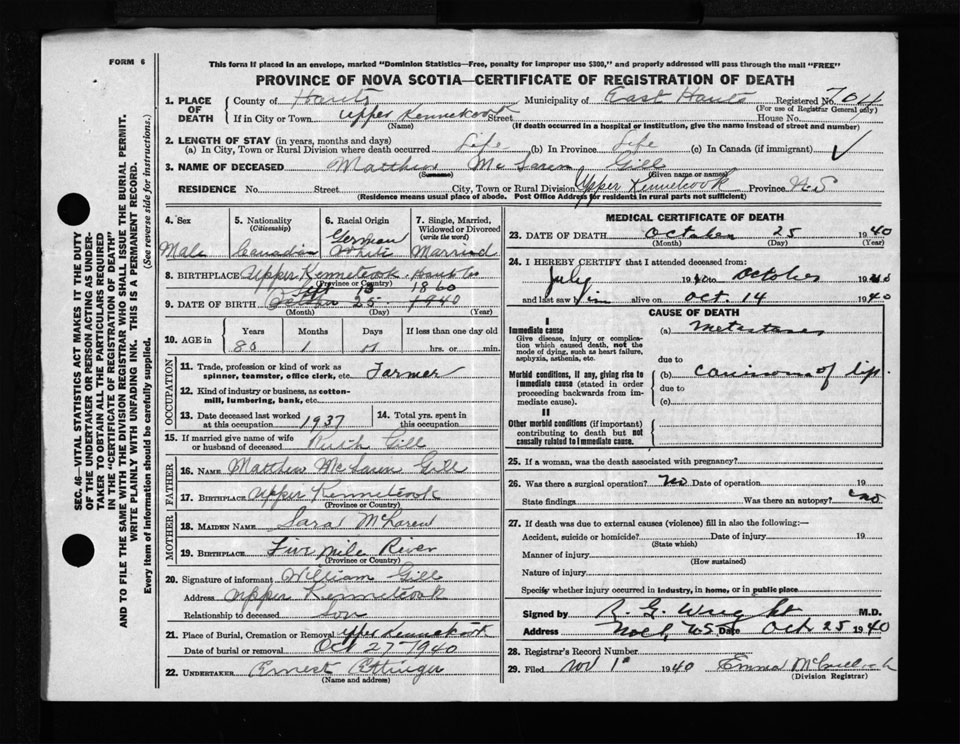 FORM 6
This form if placed in an envelope, marked "Dominion Statistics—Free, penalty for improper use $300," and properly addressed will pass through the mail "FREE"
PROVINCE OF NOVA SCOTIA—CERTIFICATE OF REGISTRATION OF DEATH
SEC. 46—VITAL STATISTICS ACT MAKES IT THE DUTY
OF THE UNDERTAKER OR PERSON ACTING AS UNDER-
TAKER TO OBTAIN ALL THE PARTICULARS REQUIRED
IN THE "CERTIFICATE OF REGISTRATION OF DEATH"
AND TO FILE THE SAME WITH THE DIVISION REGISTRAR WHO SHALL ISSUE THE BURIAL PERMIT.
WRITE PLAINLY WITH UNFADING INK. THIS IS A PERMANENT RECORD.
Every item of Information should be carefully supplied. (See reverse side for instructions.)
1. PLACE OF DEATH County of Hants Municipality of East Hants Registered No. 704
(For use of Registrar General only)
If in City or Town Upper Kennetcook Street House No.
(Name) (If death occurred in a hospital or institution, give the name instead of street and number)
2. LENGTH OF STAY (in years, months and days)
(a) In City, Town or Rural Division where death occurred Life (b) In Province Life (c) In Canada (if immigrant)
3. NAME OF DECEASED Matthew McLaren Gill
(Surname) (Given name or names)
RESIDENCE No. Street City, Town or Rural Division Upper Kennetcook Province N.S
(Residence means usual place of abode. Post Office Address for residents in rural parts not sufficient)
4. Sex 5. Nationality (Citizenship) 6. Racial Origin 7. Single, Married, Widowed or Divorced (write the word)
Male Canadian German White Married
8. BIRTHPLACE Upper Kennetcook Hants Co
(Province or Country)
Sept 13 1860
9. DATE OF BIRTH October 25 1940
(Month) (Day) (Year)
10. AGE in Years Months Days If less than one day old
80 1 hrs. or min.
OCCUPATION
11. Trade, profession or kind of work as spinner, teamster, office clerk, etc. Farmer
12. Kind of industry or business, as cotton-mill, lumbering, bank, etc.
13. Date deceased last worked at this occupation 1937 14. Total yrs. spent in this occupation
15. If married give name of wife or husband of deceased Ruth Gill
FATHER
16. NAME Matthew McLaren Gill
17. BIRTHPLACE Upper Kennetcook
(Province or Country)
MOTHER
18. MAIDEN NAME Sara McLaren
19. BIRTHPLACE Five Mile River
(Province or Country)
20. Signature of informant William Gill
Address Upper Kennetcook
Relationship to deceased Son
21. Place of Burial, Cremation or Removal Upper Kennetcook
Date of burial or removal Oct 27 1940
22. UNDERTAKER Ernest Ettinger
(Name and address)
MEDICAL CERTIFICATE OF DEATH
23. DATE OF DEATH October 25 1940
(Month) (Day) (Year)
24. I HEREBY CERTIFY that I attended deceased from:
July 19 to October 1940
and last saw him alive on Oct. 14 1940
CAUSE OF DEATH
I
Immediate cause (a)
Give disease, injury or complication which caused death, not the mode of dying, such as heart failure, asphyxia, asthenia, etc.
due to
Morbid conditions, if any, giving rise to immediate cause (stated in order proceeding backwards from immediate cause). (b) of lip
due to
(c)
II
Other morbid conditions (if important) contributing to death but not causally related to immediate cause.
25. If a woman, was the death associated with pregnancy?
26. Was there a surgical operation? No Date of operation 19
State findings Was there an autopsy? no
27. If death was due to external causes (violence) fill in also the following:—
Accident, suicide or homicide? Date of injury 19
(State which)
Manner of injury
(How sustained)
Nature of injury
Specify whether injury occurred in industry, in home, or in public place
Signed by R. G. Wright M.D.
Address Noel, N.S. Date Oct 25 1940
28. Registrar's Record Number
29. Filed Nov 1st 1940 Emma McCulloch
(Division Registrar)